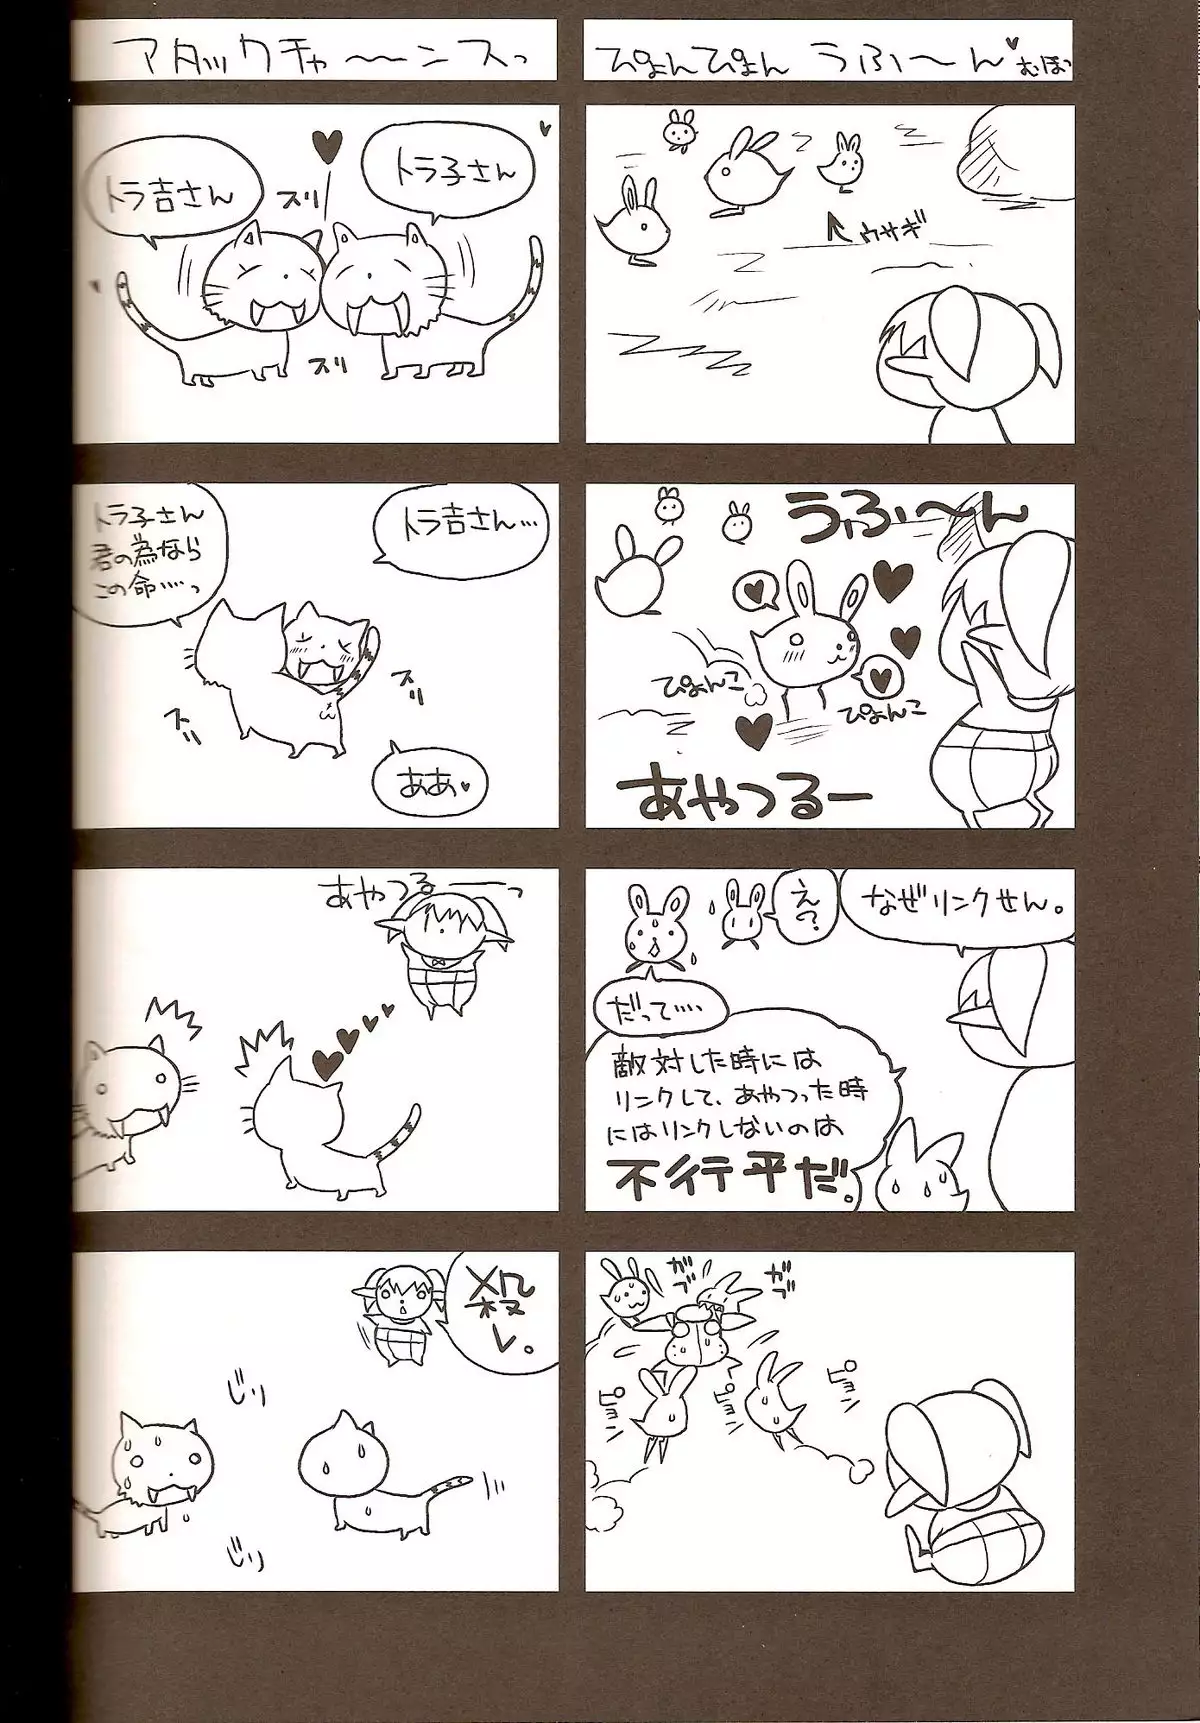 ぴょんぴょん うふ〜ん♥むほっ
↖ウサギ
うふ〜ん
♥
ぴょんこ
♥
ぴょんこ
あやつるー
なぜリンクせん。
え?
だって‥‥
敵対した時には
リンクして、あやつった時
にはリンクしないのは
不行平だ。
ガブ
ガブ
ピョン
ピョン
ピョン
アタックチャ〜〜ンスっ
トラ子さん
トラ吉さん
スリ
スリ
トラ吉さん…
トラ子さん
君の為なら
この命‥‥っ
スリ
スリ
ああ♥
あやつるーーっ
殺
レ。
じり
じり